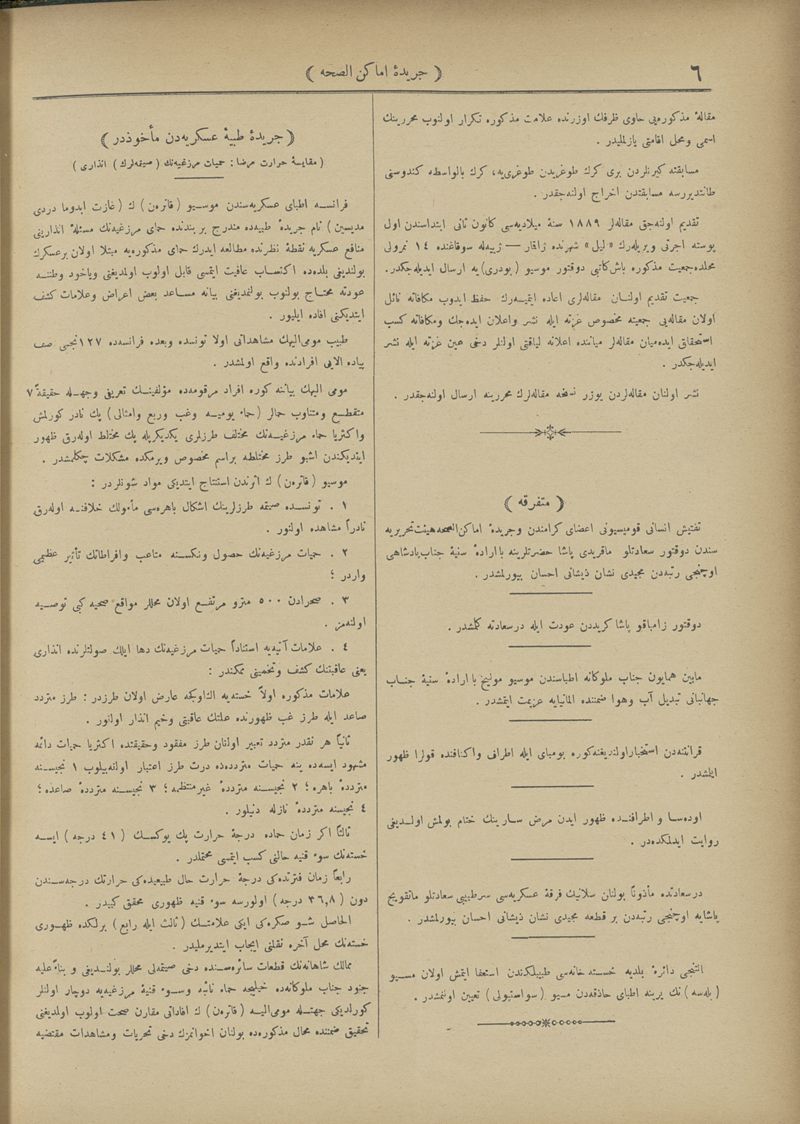 ٦
﴿ جریدهٔ اماکن الصحه ﴾
مقالهٔ مذکوره‌یی حاوی ظرفك اوزرنده علامت مذکوره تکرار اولنوب محررینك
اسمی ومحل اقامتی یازلملیدر .
مسابقته کیرنلردن بری کرك طوغریدن طوغری‌یه، کرك بالواسطه کندوسنی
طانتدیررسه مسابقتدن اخراج اولنه‌جقدر .
تقدیم اولنه‌جق مقاله‌لر ١٨٨٩ سنهٔ میلادیه‌سی کانون ثانی ابتداسندن اول
پوسته اجرتی ویریله‌رك «لیل» شهرنده زاقار — ژییه‌له سوقاغنده ١٤ نمرولی
محلده جمعیت مذکوره باش‌کاتبی دوقتور موسیو (بودری) یه ارسال ایدیله‌جکدر.
جمعیت تقدیم اولنان مقاله‌لری اعاده ایتمیه‌رك حفظ ایدوب مکافاته نائل
اولان مقاله‌یی جمعیته مخصوص غزته ایله نشر واعلان ایده‌جك ومکافاته کسب
استحقاق ایده‌میان مقاله‌لر میاننده اعلانه لیاقتی اولنلر دخی عین غزته ایله نشر
ایدیله‌جکدر .
نشر اولنان مقاله‌لردن یوزر نسخه مقاله‌لرك محررینه ارسال اولنه‌جقدر .
﴿ متفرقه ﴾
تفتیش انسانی قومیسیونی اعضای کرامندن وجریدهٔ اماکن‌الصحه هیئت تحریریه
سندن دوقتور سعادتلو ماقریدی پاشا حضرتلرینه باارادهٔ سنیهٔ جناب پادشاهی
اوچنجی رتبه‌دن مجیدی نشان ذیشانی احسان بیورلمشدر .
دوقتور زامباقو پاشا کریددن عودت ایله درسعادته کلمشدر .
مابین همایون جناب ملوکانه اطباسندن موسیو مولیخ باارادهٔ سنیهٔ جناب
جهانبانی تبدیل آب وهوا ضمننده المانیایه عزیمت ایتمشدر .
قرائتندن استخبار اولندیغنه‌کوره بومبای ایله اطراف واکنافنده قولرا ظهور
ایلمشدر .
اوده‌سا و اطرافنده ظهور ایدن مرض ساریتك ختام بولمش اولدیغی
روایت ایدلمکده‌در .
درسعادته مأذوناً بولنان سلانیك فرقهٔ عسکریه‌سی سرطبیبی سعادتلو مانقویج
پاشایه اوچنجی رتبه‌دن بر قطعه مجیدی نشان ذیشانی احسان بیورلمشدر .
التنجی دائرهٔ بلدیه خسته خانه‌سی طبیبلکندن استعفا ایتمش اولان مسیو
(پله‌سه) نك یرینه اطبای حاذقه‌دن مسیو (سواستپولی) تعیین اولنمشدر .
﴿ جریدهٔ طبیهٔ عسکریه‌دن مأخوذدر ﴾
( مقایسهٔ حرارت مرضا : حمیات مرزغیه‌نك (صیتمه‌لرك) انذاری )
فرانسه اطبای عسکریه‌سندن موسیو (قاترەن) ك (غازت ایدوما دردی
مدیسین) نام جریدهٔ طبیه‌ده مندرج بر بندنده حمای مرزغیه‌نك مسئلهٔ انذارینی
منافع عسکریه نقطهٔ نظرنده مطالعه ایدرك حمای مذکوره‌یه مبتلا اولان برعسکرك
بولندیغی بلده‌ده اکتساب عافیت ایتمسی قابل اولوب اولمدیغی ویاخود وطننه
عودته محتاج بولنوب بولنمدیغنی بیانه مساعد بعض اعراض وعلامات کشف
ایتدیکنی افاده ایلیور .
طبیب مومی‌الیهك مشاهداتی اولا تونسده وبعده فرانسه‌ده ١٢٧نجی صف
پیاده الایی افرادنده واقع اولمشدر .
مومی الیهك بیاننه کوره افراد مرقومه‌ده مؤلفینك تعریفی وجهله حقیقهً
متقطع ومتناوب حمالر (حماء یومیه وغب وربع وامثالی) پك نادر کورلمش
واکثریا حماء مرزغیه‌نك مختلف طرزلری یکدیکریله پك مختلط اوله‌رق ظهور
ایتدیکندن اشبو طرز مختلطه براسم مخصوص ویرمکده مشکلات چکلمشدر .
موسیو (قاترەن) ك اثرندن استنتاج ایتدیکی مواد شونلردر :
١ . تونسده صیتمه طرزلرینك اشکال باهره‌سی مأمولك خلافنه اوله‌رق
نادراً مشاهده اولنور .
٢ . حمیات مرزغیه‌نك حصول ونکسنه متاعب وافراطاتك تأثیر عظیمی
واردر ؛
٣ . صحرادن ٥٠٠ مترو مرتفع اولان محللر مواقع صحیه کبی توصیه
اولنه‌من .
٤ . علامات آتیه‌یه استناداً حمیات مرزغیه‌نك دها ایلك صولتلرنده انذاری
یعنی عاقبتك کشف وتخمینی ممکندر :
علامات مذکوره اولاً خسته‌یه الك‌اوجکه عارض اولان طرزدر : طرز متردد
صاعد ایله طرز غب ظهورنده علتك عاقبتی وخیم انذار اولنور .
ثانیاً هر نقدر متردد تعبیر اولنان طرز مفقود وحقیقتده اکثریا حمیات دائمه
مشهود ایسه‌ده ینه حمیات مترددده درت طرز اعتبار اولنه‌بیلوب ١ نجیسنه
مترددهٔ باهره ؛ ٢ نجیسنه مترددهٔ غیرمنتظمه ؛ ٣ نجیسنه مترددهٔ صاعده ؛
٤ نجیسنه مترددهٔ نازله دنیلور .
ثالثاً اکر زمان حماده درجهٔ حرارت پك یوکسك (٤١ درجه) ایسه
خسته‌نك سوء قنیه حالنی کسب ایتمسی محتملدر .
رابعاً زمان فترتده‌کی درجهٔ حرارت حال طبیعیده‌کی حرارتك درجه‌سندن
دون (٣٦,٨ درجه) اولورسه سوء قنیه ظهوری محقق کبیدر .
الحاصل شو صکره‌کی ایکی علامتك (ثالث ایله رابع) برلکده ظهوری
خسته‌نك محل آخره نقلنی ایجاب ایتدیرملیدر .
ممالك شاهانه‌نك قطعات سائره‌سنده دخی صیتمه‌لی محللر بولندیغی و بناءً علیه
جنود جناب ملوکانه‌ده خیلیجه حماء نائبه وسوء قنیهٔ مرزغیه‌یه دوچار اولنلر
کورلدیکی جهتله مومی‌الیه (قاترەن) ك افاداتی مقارن صحت اولوب اولمدیغنی
تحقیق ضمننده محال مذکوره‌ده بولنان اخوانمزك دخی تحریات ومشاهدات مقتضیه